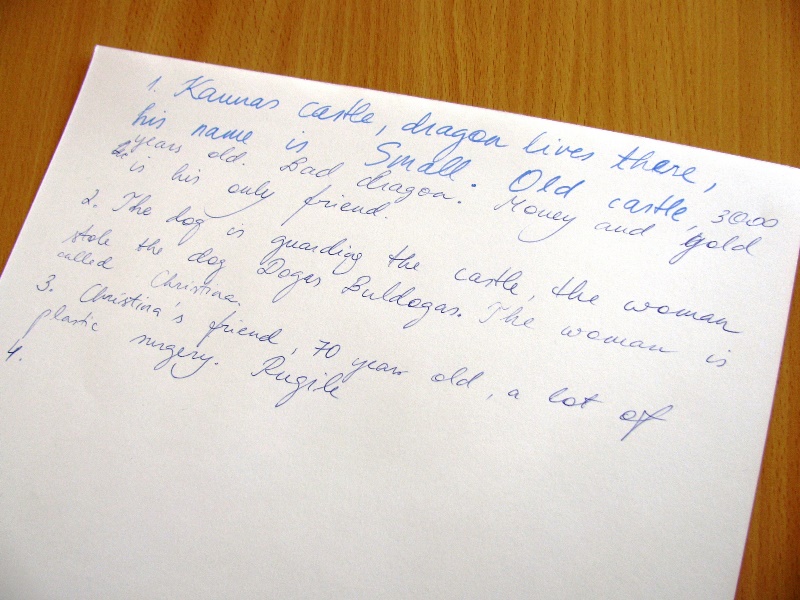 1. Kaunas castle, dragon lives there,
his name is Small. Old castle, 3000
years old. Bad dragon. Money and gold
is his only friend.
2. The dog is guarding the castle, the woman
stole the dog Dogas Buldogas. The woman is
called Christina.
3. Christina's friend, 70 years old, a lot of
plastic surgery. Rugile
4.